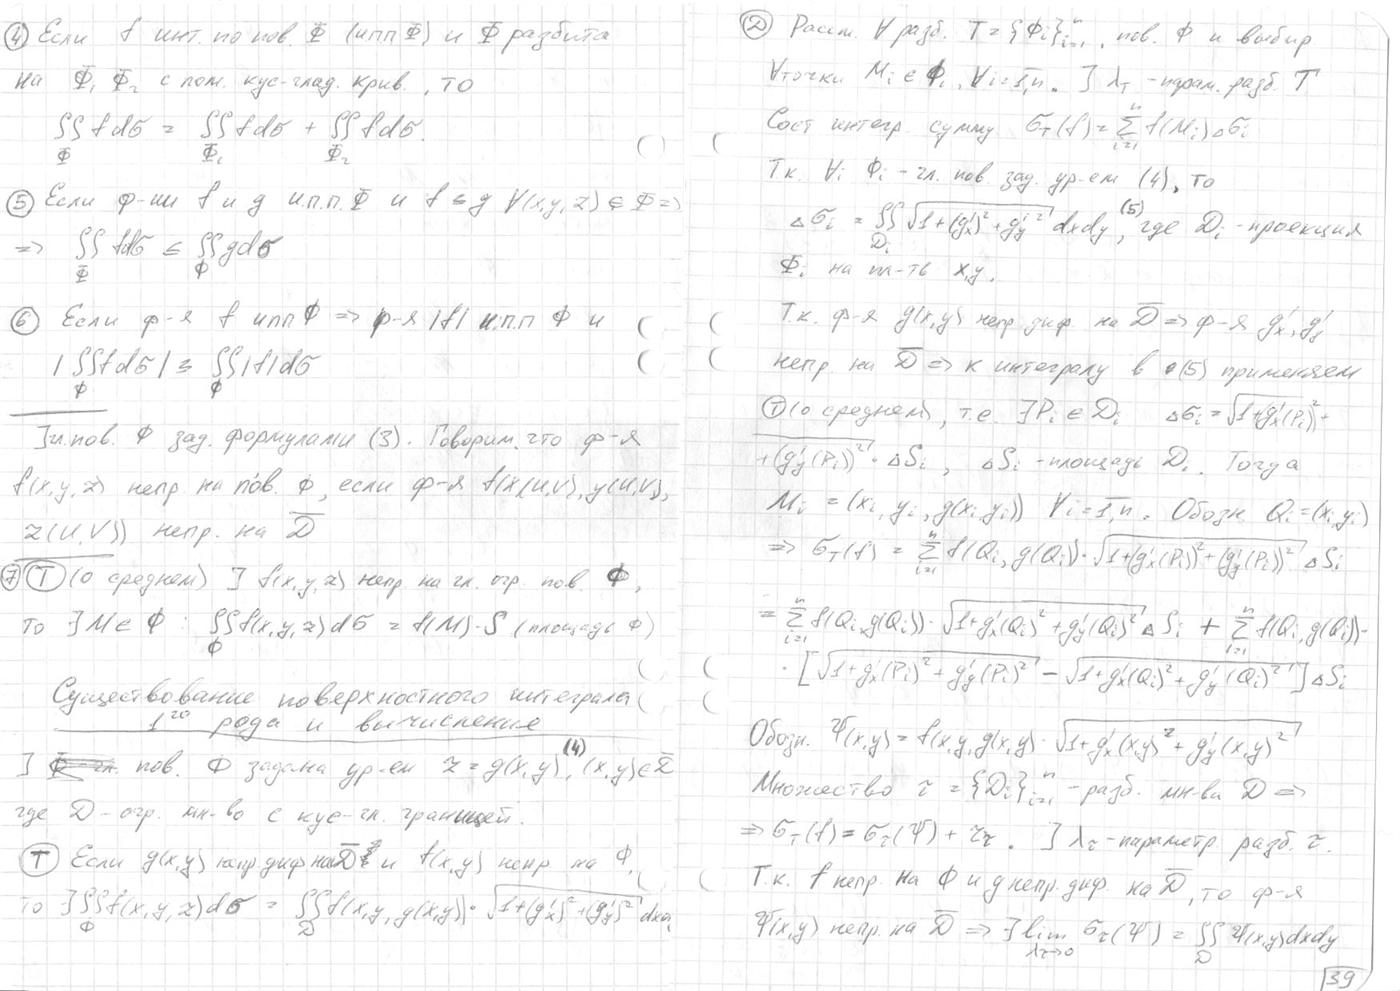 ④ Если f инт. по пов. Φ (ипп Φ) и Φ разбита
на Φ₁ Φ₂ с пом. кус-глад. крив., то
∬_Φ f dσ = ∬_Φ₁ f dσ + ∬_Φ₂ f dσ.
⑤ Если ф-ии f и g и.п.п. Φ и f ≤ g ∀(x,y,z) ∈ Φ =>
=> ∬_Φ f dσ ≤ ∬_Φ g dσ
⑥ Если ф-я f ипп Φ => ф-я |f| и.п.п Φ и
|∬_Φ f dσ| ≤ ∬_Φ |f| dσ
] гл. пов. Φ зад. формулами (3). Говорим, что ф-я
f(x,y,z) непр. на пов. Φ, если ф-я f(x(u,v), y(u,v),
z(u,v)) непр. на D̅
⑦ Ⓣ (о среднем) ] f(x,y,z) непр. на гл. огр. пов. Φ,
то ∃ M ∈ Φ : ∬_Φ f(x,y,z) dσ = f(M)·S (площадь Φ)
Существование поверхностного интеграла
1го рода и вычисление
] пов. Φ задана ур-ем z = g(x,y) (4), (x,y) ∈ D̅
где D - огр. мн-во с кус-гл. границей.
Ⓣ Если g(x,y) непр диф на D̅ и f(x,y) непр на Φ,
то ∃ ∬_Φ f(x,y,z) dσ = ∬_D f(x,y,g(x,y))·√(1+(g'x)²+(g'y)²) dxdy
Ⓓ Рассм. ∀ разб. T = {Φi}ⁿi=1, пов. Φ и выбир
∀ точки Mi ∈ Φi, ∀i=1,n. ] λT - парам. разб. T
Сост интегр. сумму σT(f) = Σⁿi=1 f(Mi) Δσi
Т.к. ∀i Φi - гл. пов. зад. ур-ем (4), то
Δσi = ∬_Di √(1+(g'x)²+g'y²) dxdy (5), где Di - проекция
Φi на пл-ть x,y.
Т.к. ф-я g(x,y) непр диф. на D̅ => ф-я g'x, g'y
непр. на D̅ => к интегралу в (5) применяем
Ⓣ (о среднем), т.е. ∃ Pi ∈ Di Δσi = √(1+g'x(Pi)²+
+(g'y(Pi))²)·ΔSi, ΔSi - площадь Di. Тогда
Mi = (xi, yi, g(xi yi)) ∀i=1,n. Обозн. Qi = (xi,yi)
=> σT(f) = Σⁿi=1 f(Qi, g(Qi))·√(1+(g'x(Pi))²+(g'y(Pi))²) ΔSi
= Σⁿi=1 f(Qi, g(Qi))·√(1+g'x(Qi)²+g'y(Qi)²) ΔSi + Σⁿi=1 f(Qi, g(Qi))·
·[√(1+g'x(Pi)²+g'y(Pi)²) − √(1+g'x(Qi)²+g'y(Qi)²)] ΔSi
Обозн. Ψ(x,y) = f(x,y,g(x,y)·√(1+g'x(x,y)²+g'y(x,y)²)
Множество τ = {Di}ⁿi=1 - разб. мн-ва D =>
=> σT(f) = στ(Ψ) + rτ. ] λτ - параметр. разб. τ.
Т.к. f непр. на Φ и g непр. диф. на D̅, то ф-я
Ψ(x,y) непр. на D̅ => ∃ lim λτ→0 στ(Ψ) = ∬_D Ψ(x,y) dxdy
39